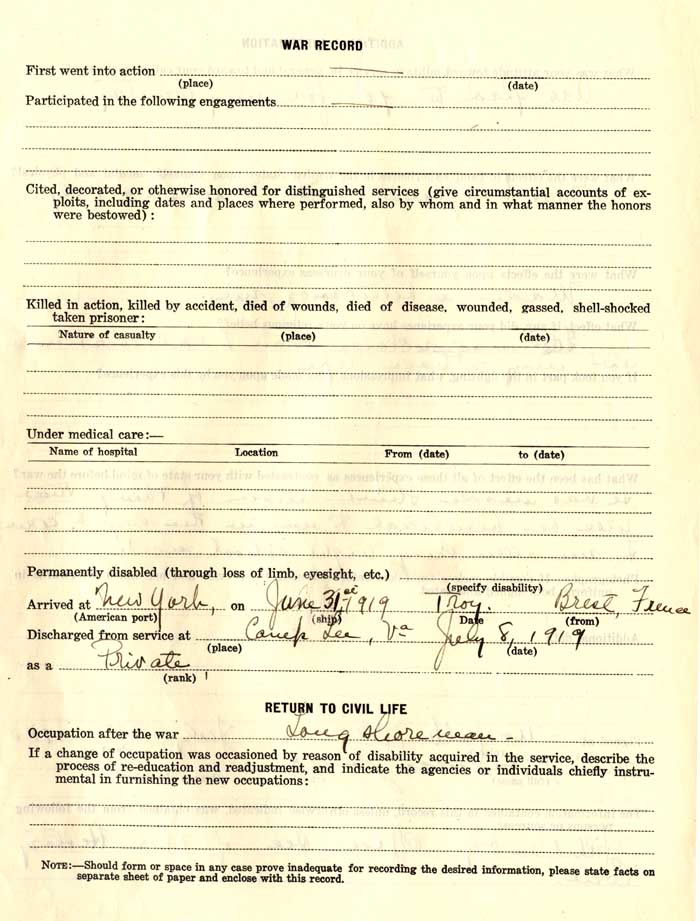 WAR RECORD
First went into action
(place) (date)
Participated in the following engagements
Cited, decorated, or otherwise honored for distinguished services (give circumstantial accounts of ex-
ploits, including dates and places where performed, also by whom and in what manner the honors
were bestowed) :
Killed in action, killed by accident, died of wounds, died of disease, wounded, gassed, shell-shocked
taken prisoner:
Nature of casualty (place) (date)
Under medical care:—
Name of hospital Location From (date) to (date)
Permanently disabled (through loss of limb, eyesight, etc.)
(specify disability)
Arrived at New York, on June 31st, 1919 Troy. Brest, Frence
(American port) (ship) Date (from)
Discharged from service at Camp Lee, Va July 8, 1919
(place) (date)
as a Private
(rank)
RETURN TO CIVIL LIFE
Occupation after the war Long shoreman -
If a change of occupation was occasioned by reason of disability acquired in the service, describe the
process of re-education and readjustment, and indicate the agencies or individuals chiefly instru-
mental in furnishing the new occupations:
NOTE:—Should form or space in any case prove inadequate for recording the desired information, please state facts on
separate sheet of paper and enclose with this record.